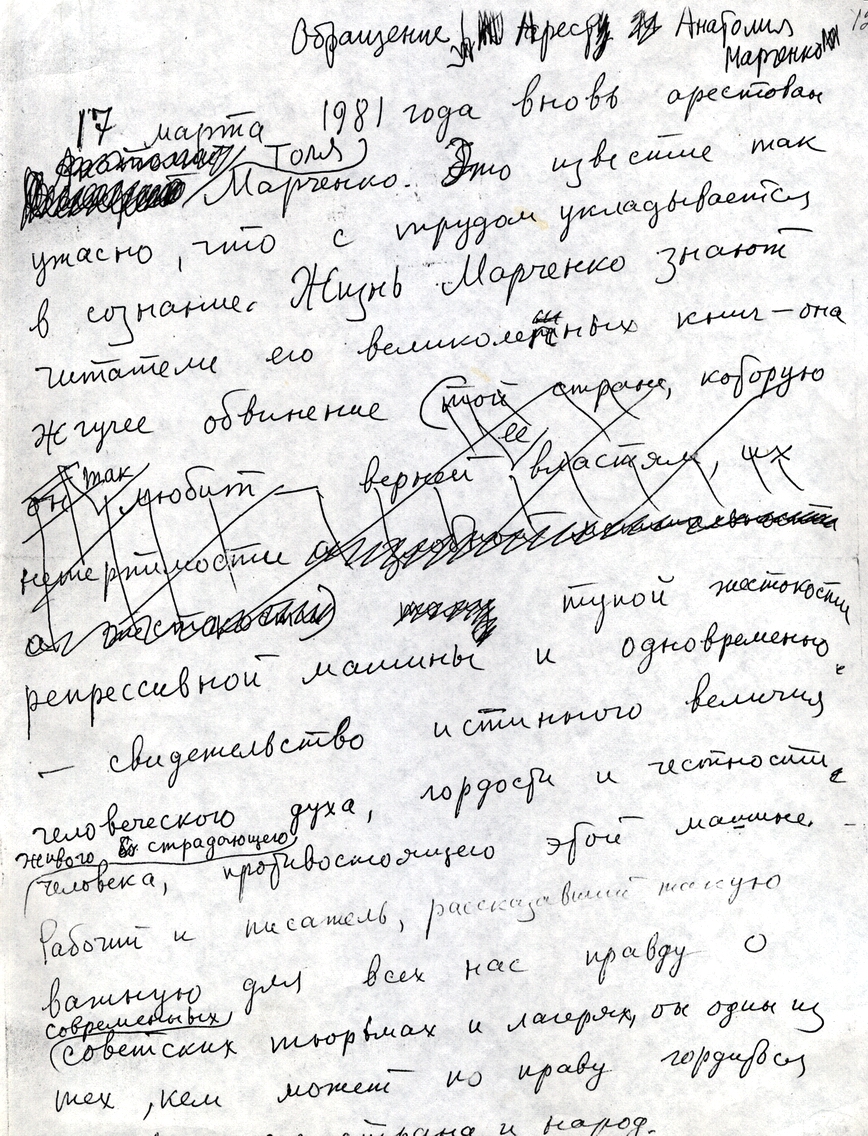 Обращение Аресту Анатолия
Марченко
17 марта 1981 года вновь арестован
Толя
Марченко. Это известие так
ужасно, что с трудом укладывается
в сознание. Жизнь Марченко знают
читатели его великолепных книг – она
жгучее обвинение (той стране, которую
ее
он так любит – верней властям, их
нетерпимости
жестокости) тупой жестокости
репрессивной машины и одновременно
– свидетельство истинного величия
человеческого духа, гордости и честности
живого страдающего
человека, противостоящего этой машине.
Рабочий и писатель, рассказавший такую
важную для всех нас правду о
современных
советских тюрьмах и лагерях, он один из
тех, кем может по праву гордиться
страна и народ.